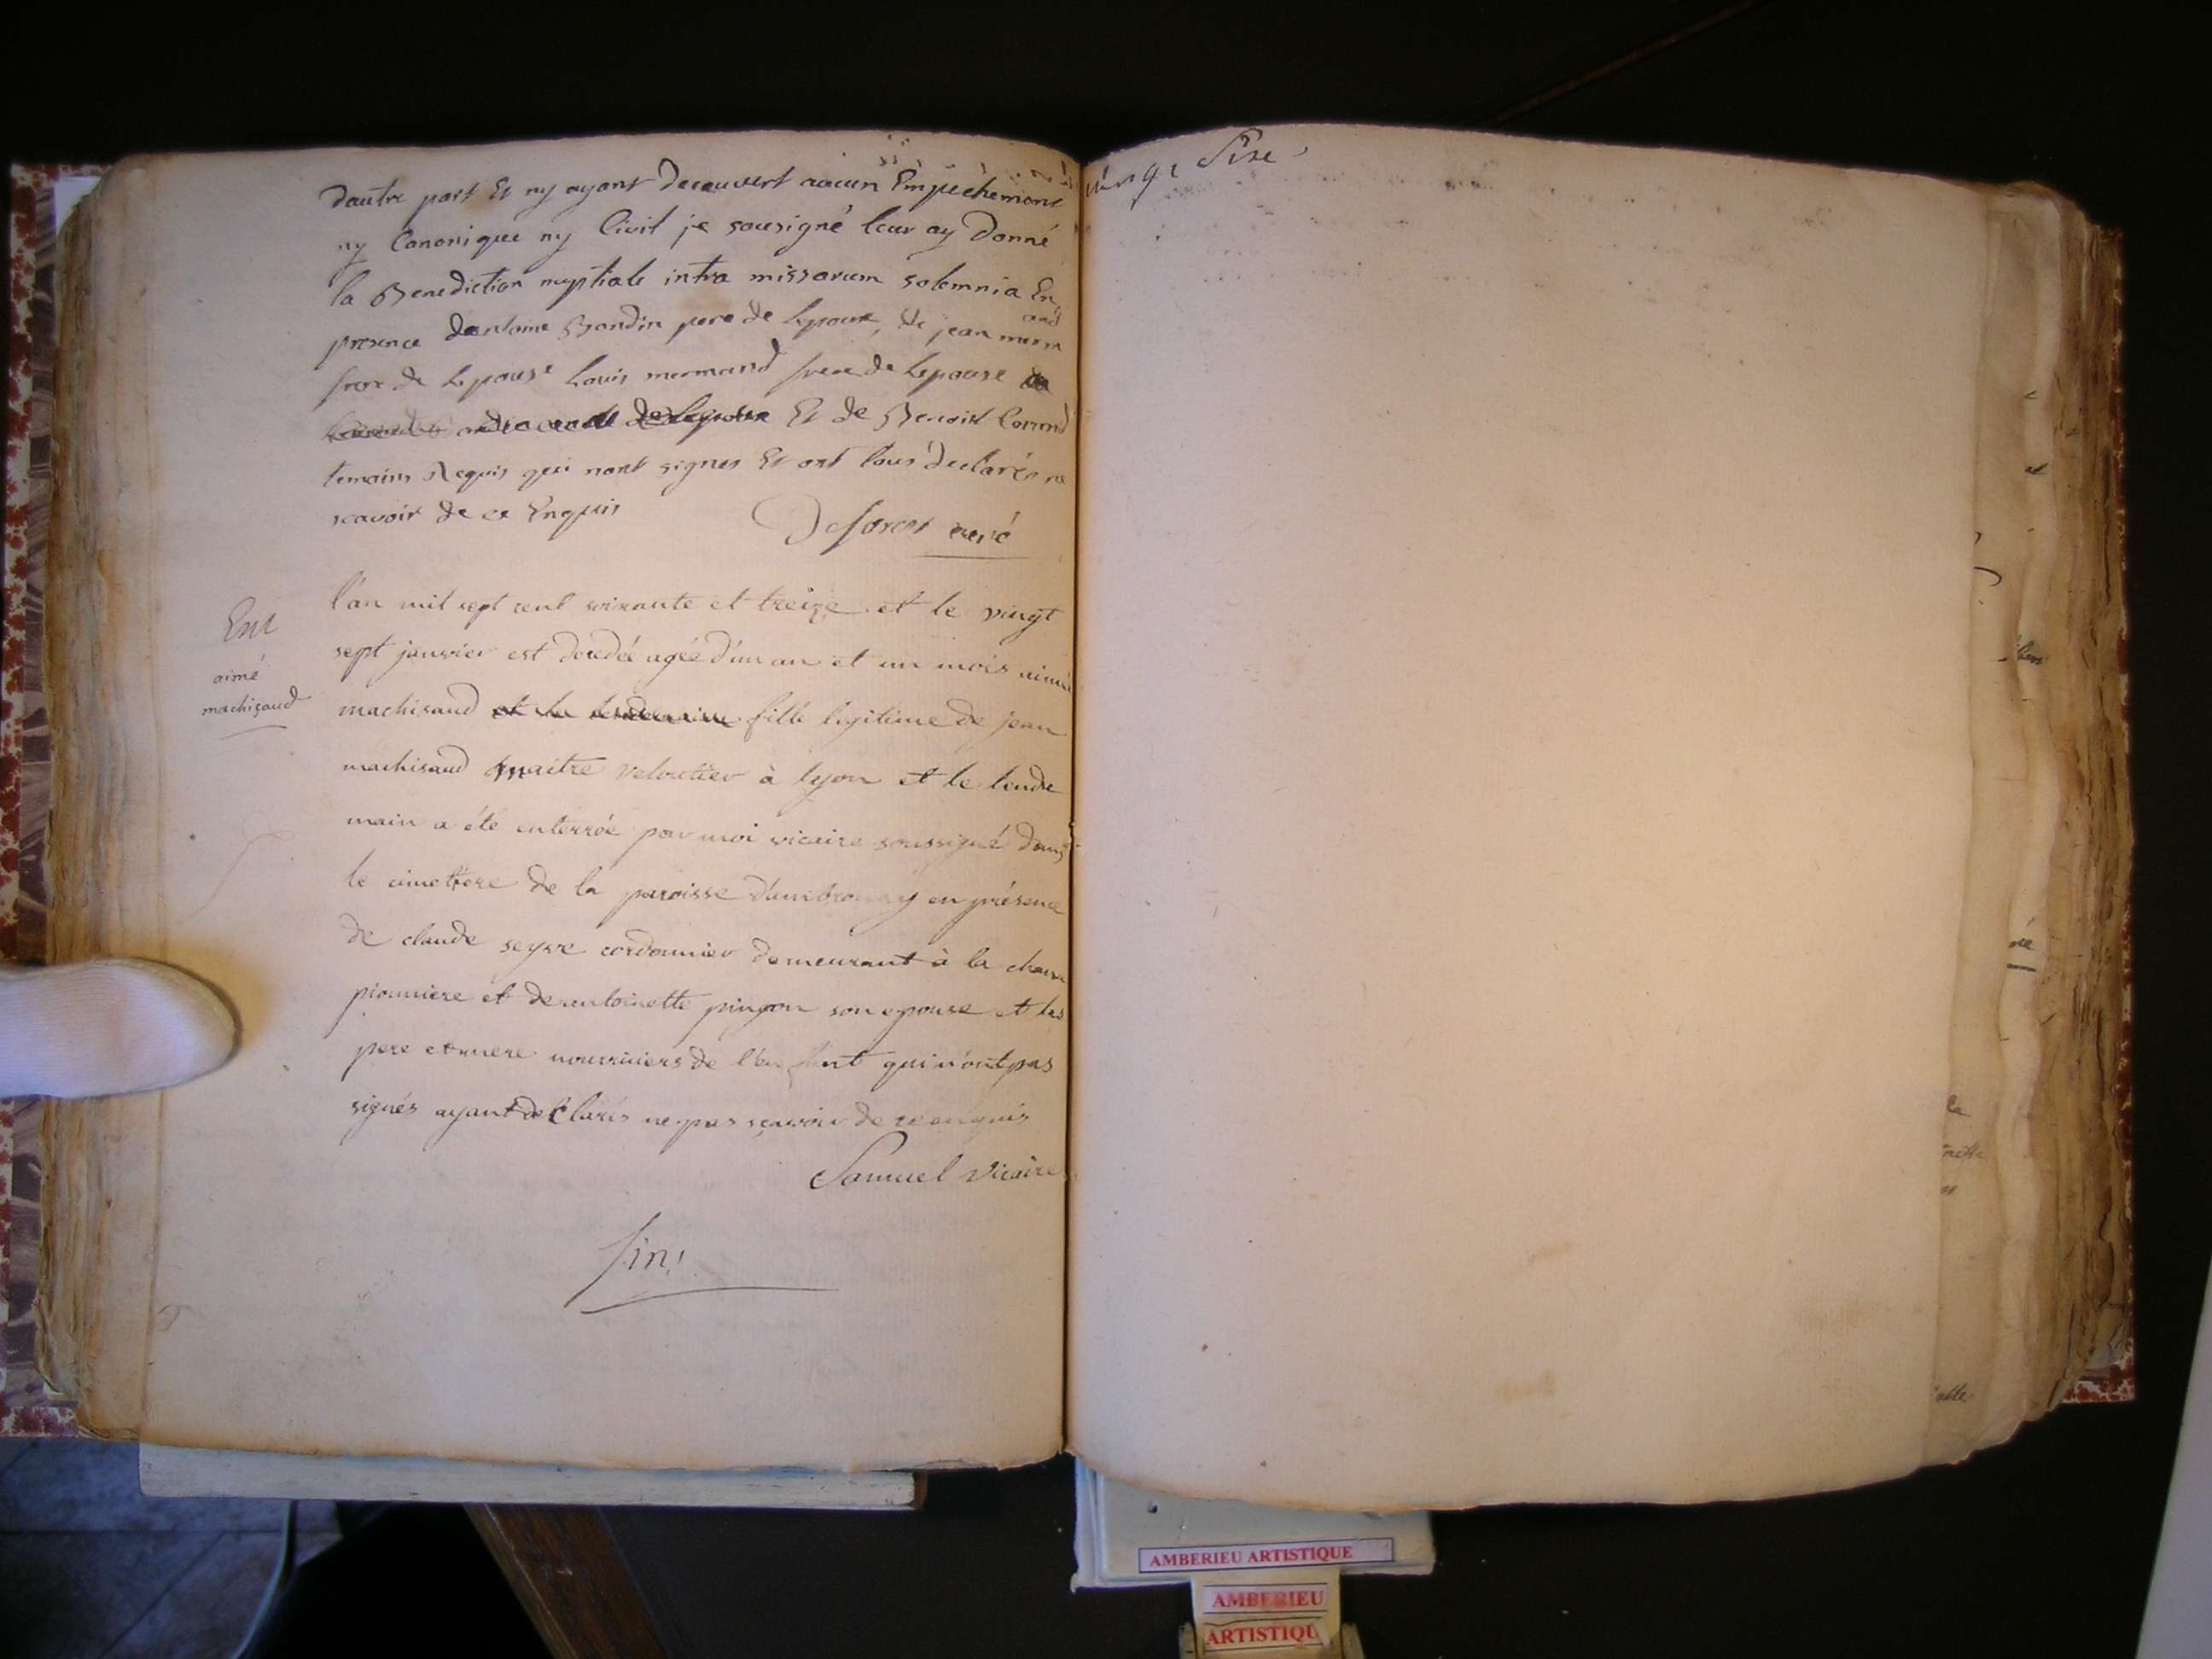 dautre part Et ny ayant decouvert aucun Empechement
ny Canonique ny Civil je sousigné leur ay donné
la Benediction nuptiale intra missarum solemnia En
presence dantoine Bondin pere de lepoux, de jean merm
and
frere de lepouse louis mermand frere de lepouse
Et de Benoist
temoins Requis qui nont signes Et ont tous declarés ne
scavoir de ce Enquis
Deforest curé
l'an mil sept cent soixante et treize et le vingt
sept janvier est décédée agée d'un an et un mois aimé
machizaud et le lendemain fille legitime de jean
machisaud maitre veloutier à lyon et le lende
main a été enterrée par moi vicaire soussigné dans
le cimettere de la paroisse d'ambronay en présence
de claude seyve cordonnier demeurant à la cham
pionniere et de antoinette pingon son epouse et les
pere et mere nourriciers de l'enfant qui n'ont pas
signés ayant declarés ne pas sçavoir de ce enquis
Samuel vicaire
fin
Ent
aimé
machizaud
AMBERIEU ARTISTIQUE
AMBERIEU
ARTISTIQU